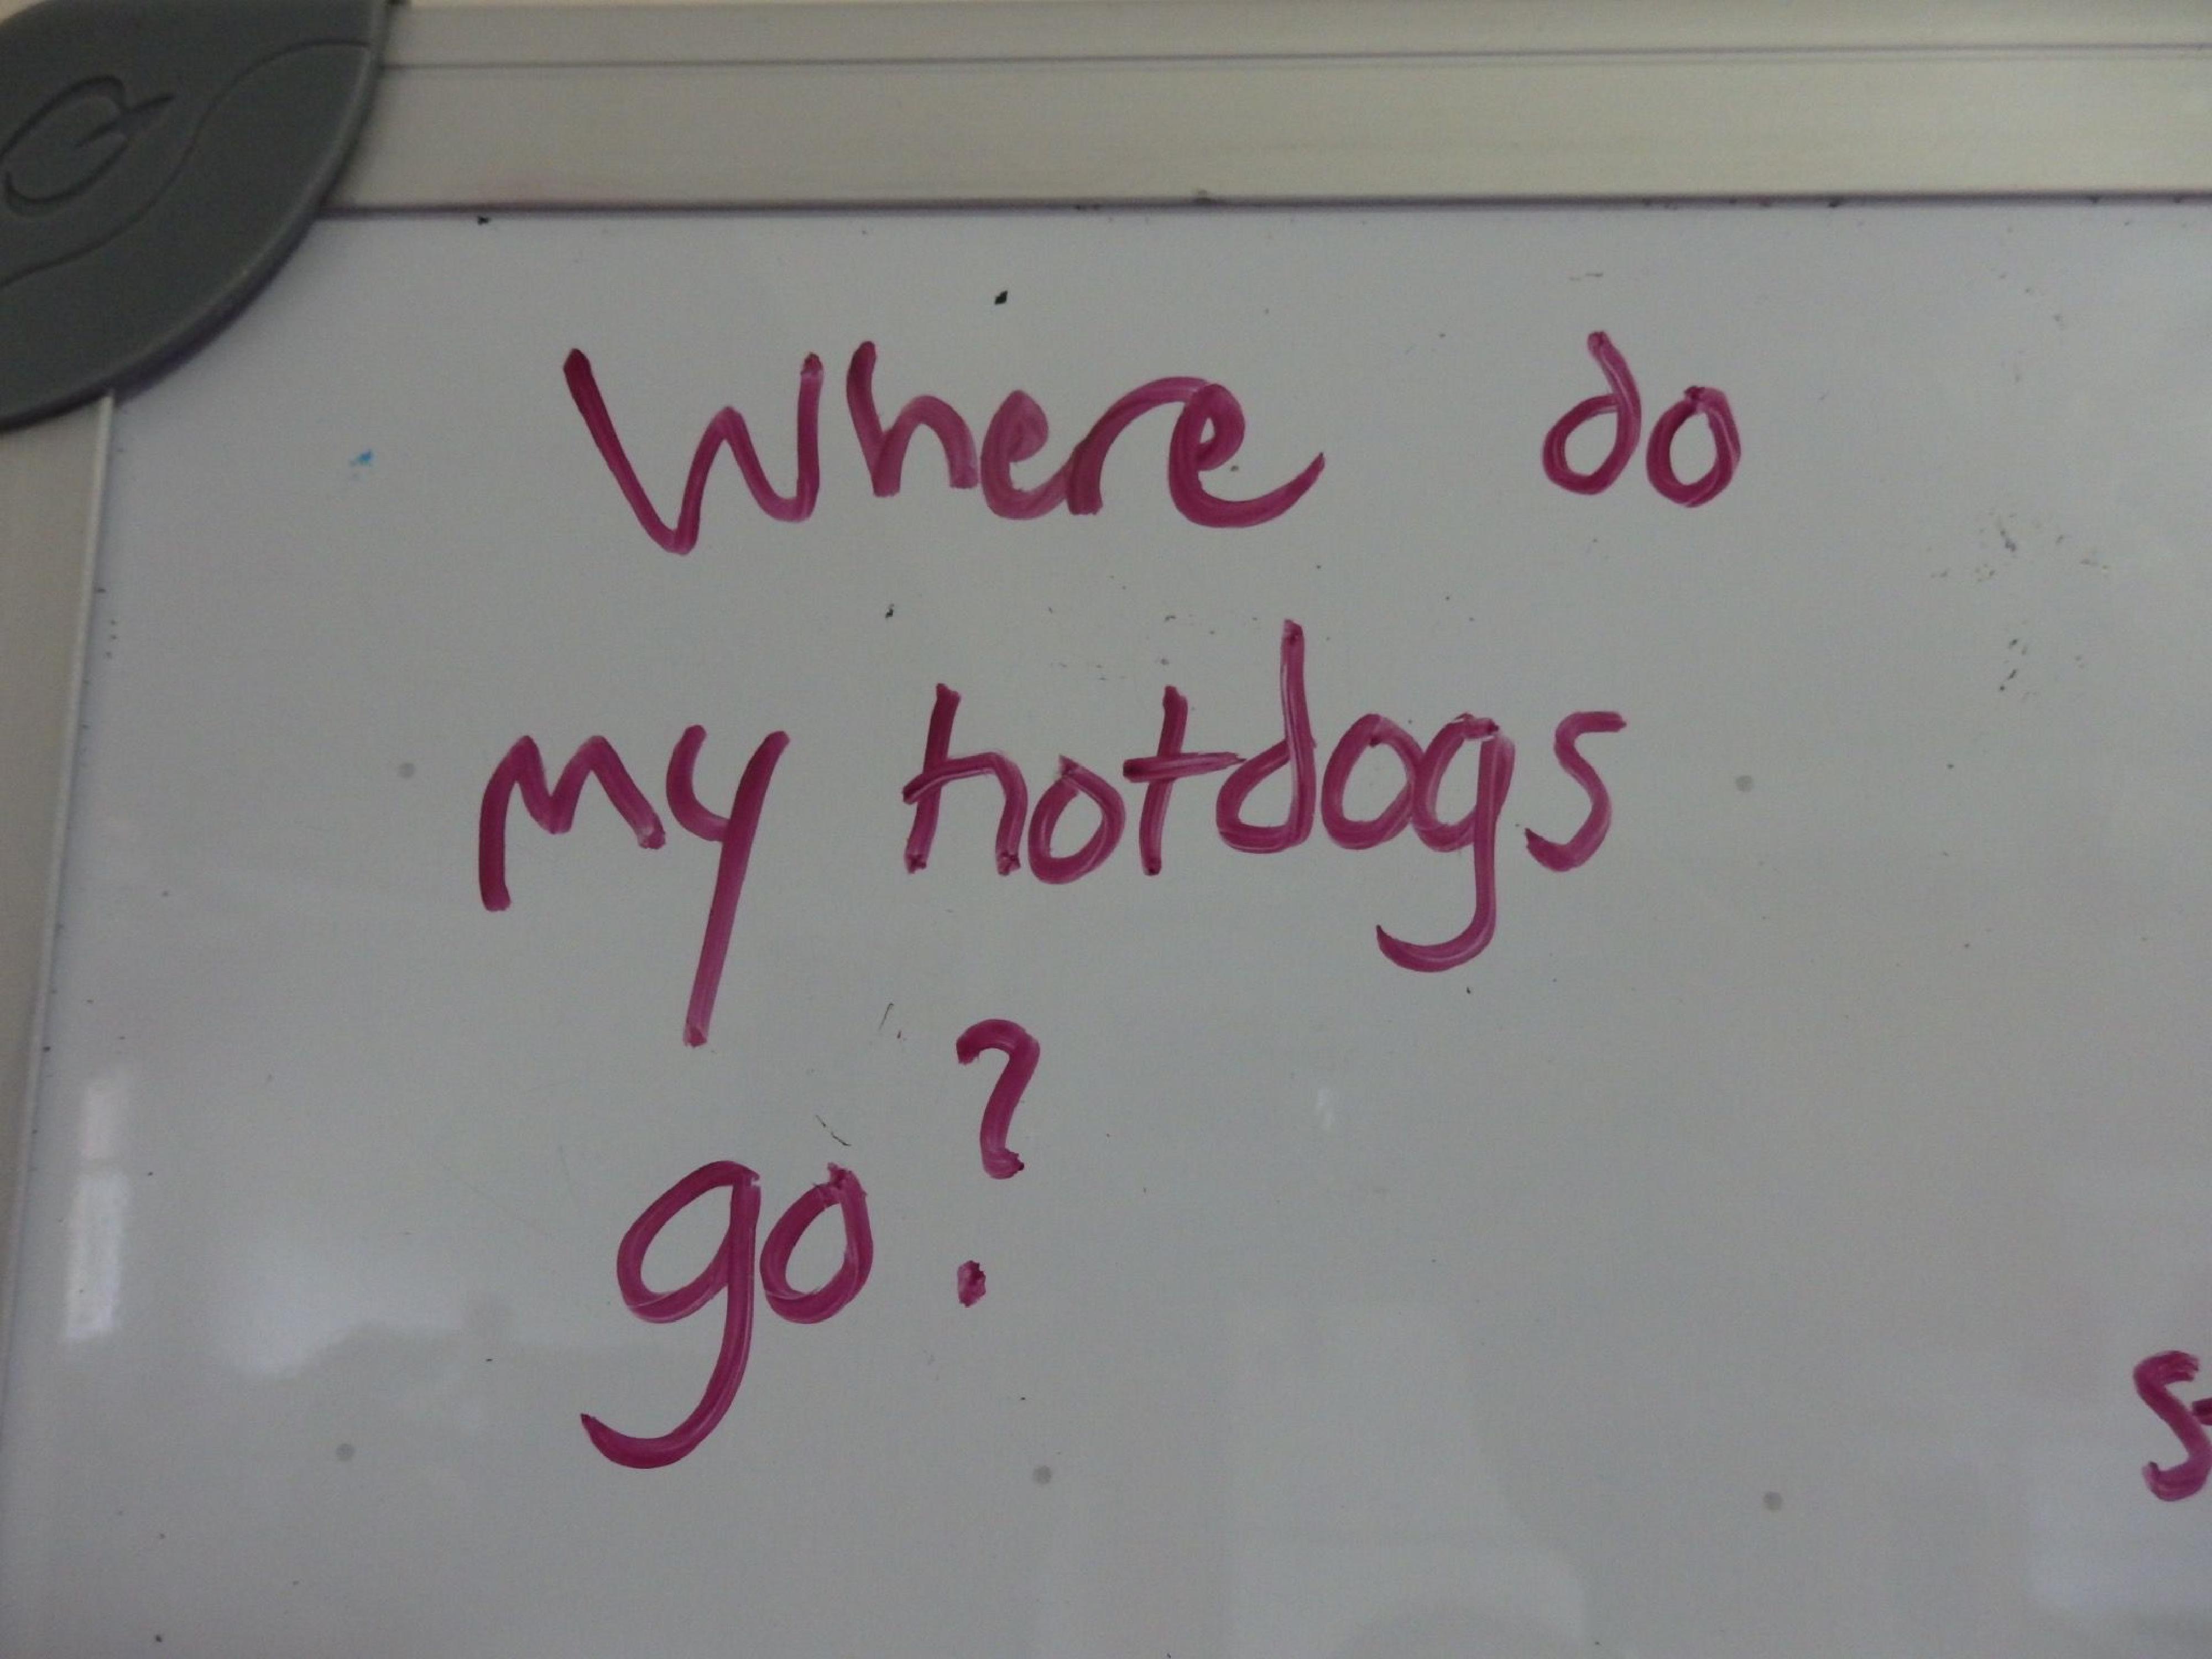 Where do
my hotdogs
go?